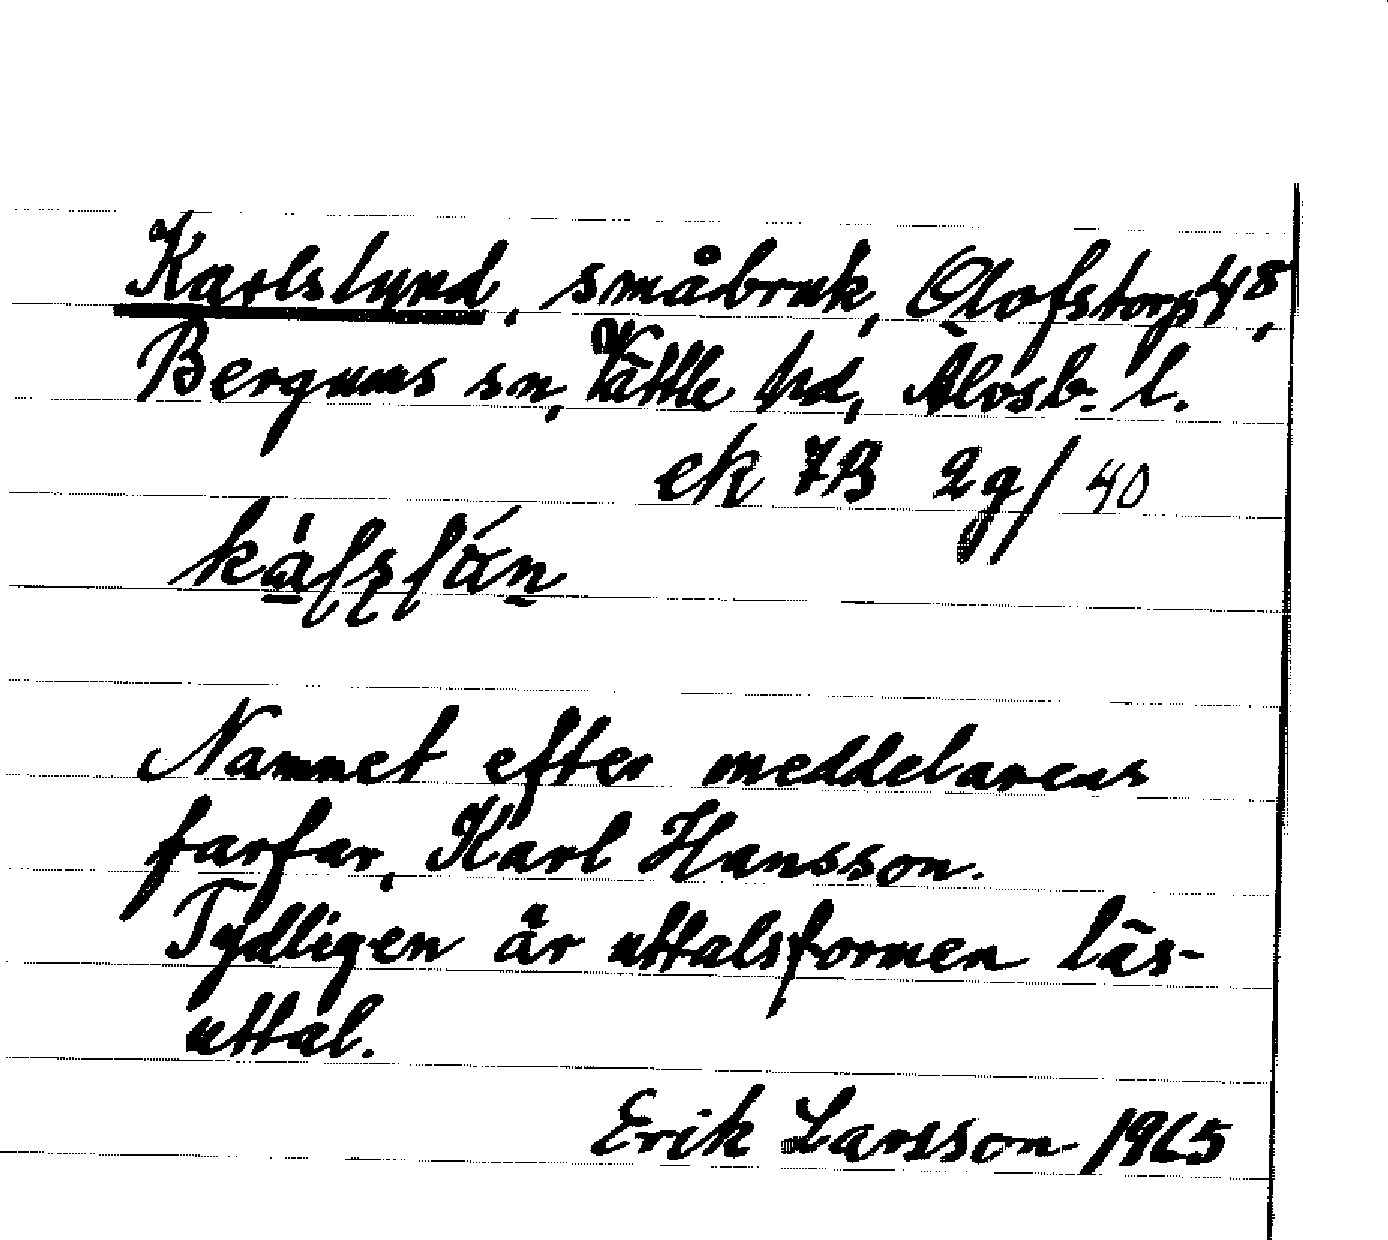 Karlslund, småbruk, Olofstorp 4⁸,
Bergums sn, Vättle hd, Älvsb. l.
ek 7B 2g/40
Namnet efter meddelarens
farfar, Karl Hansson.
Tydligen är uttalsformen läs-
uttal.
Erik Larsson 1965